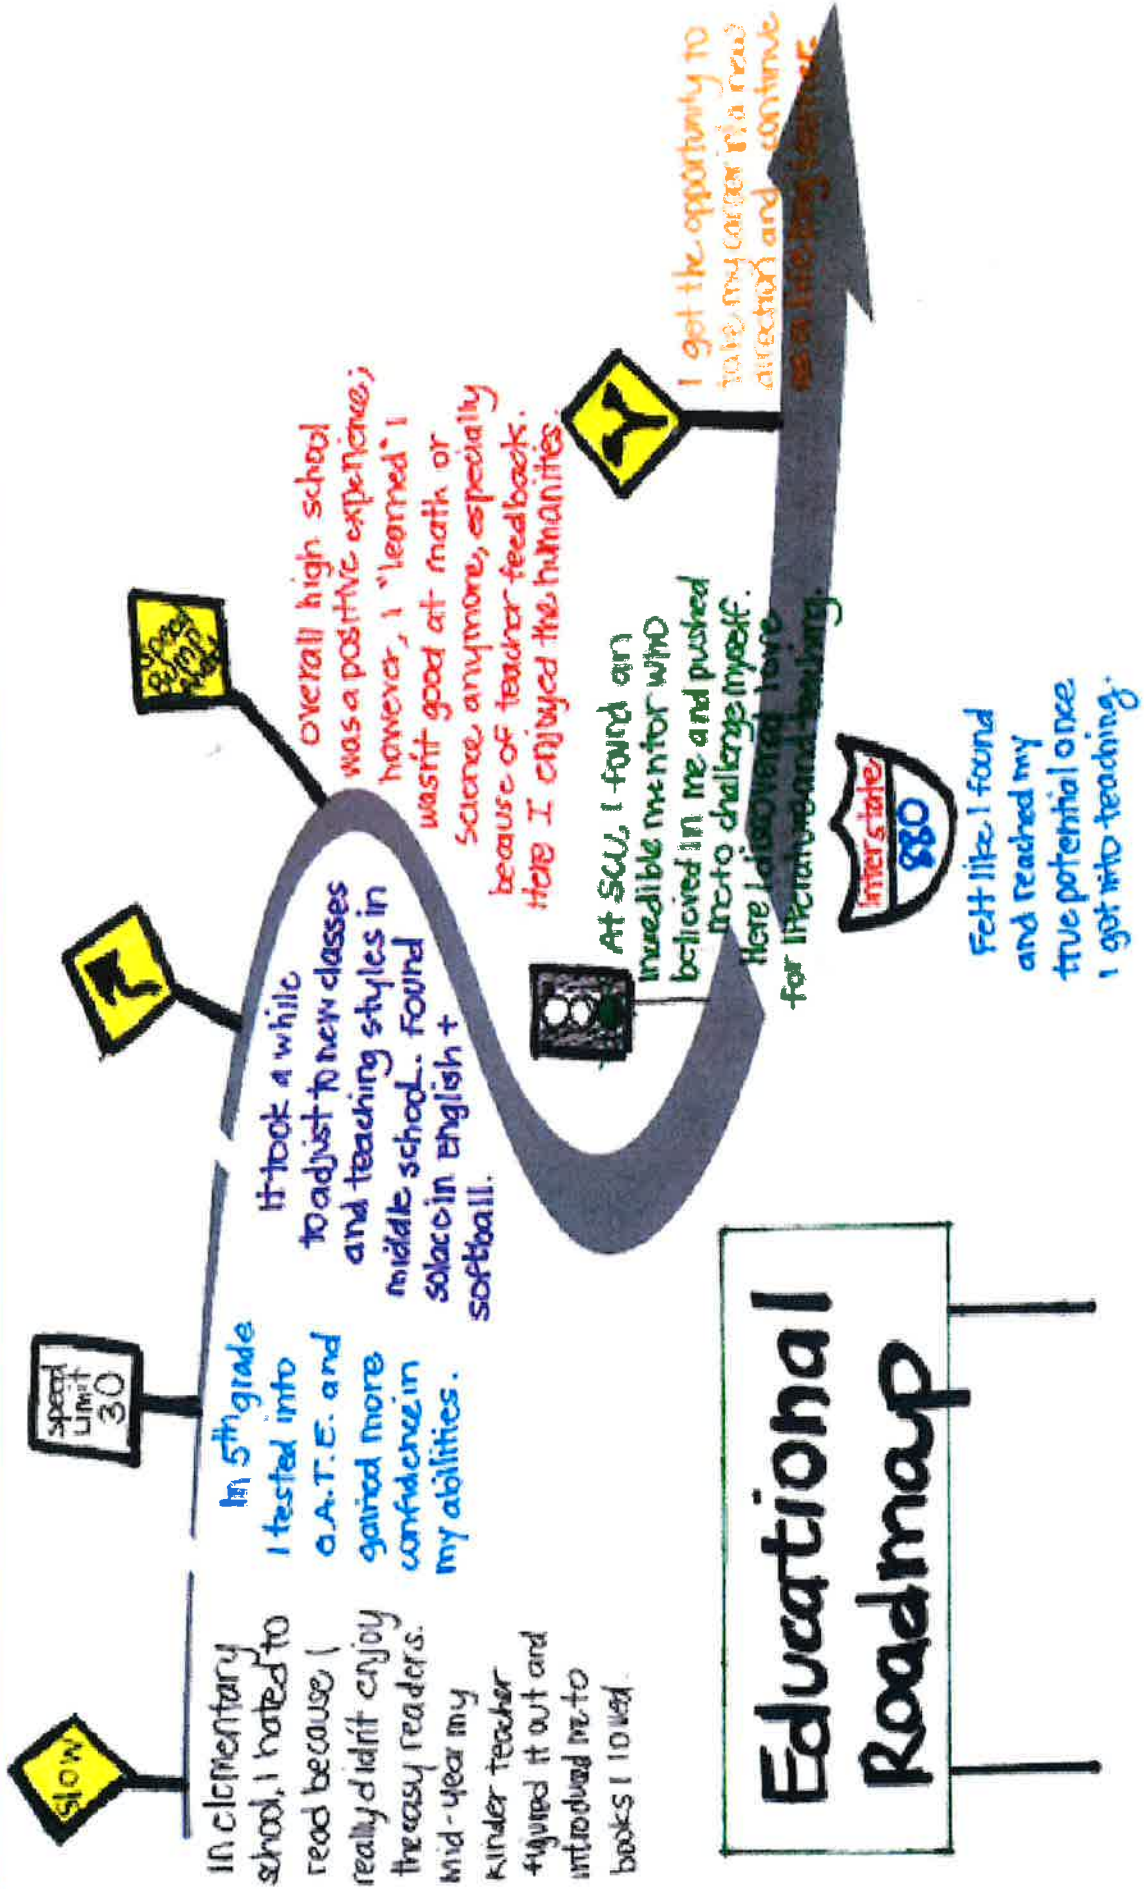 SLOW
In elementary
school, I hated to
read because I
really didn't enjoy
the easy readers.
Mid-year my
kinder teacher
figured it out and
introduced me to
books I loved.
Speed
Limit
30
In 5th grade
I tested into
G.A.T.E. and
gained more
confidence in
my abilities.
It took a while
to adjust to new classes
and teaching styles in
middle school. Found
solace in english +
softball.
Speed
overall high school
was a positive experience;
however, I "learned" I
wasn't good at math or
science anymore, especially
because of teacher feedback.
Here I enjoyed the humanities.
At SCU, I found an
incredible mentor who
believed in me and pushed
me to challenge myself.
Here I discovered love
for literature and teaching.
Interstate
880
Felt like I found
and reached my
true potential once
I got into teaching.
I got the opportunity to
take my career in a new
direction and continue
as a life long learner.
Educational
Roadmap